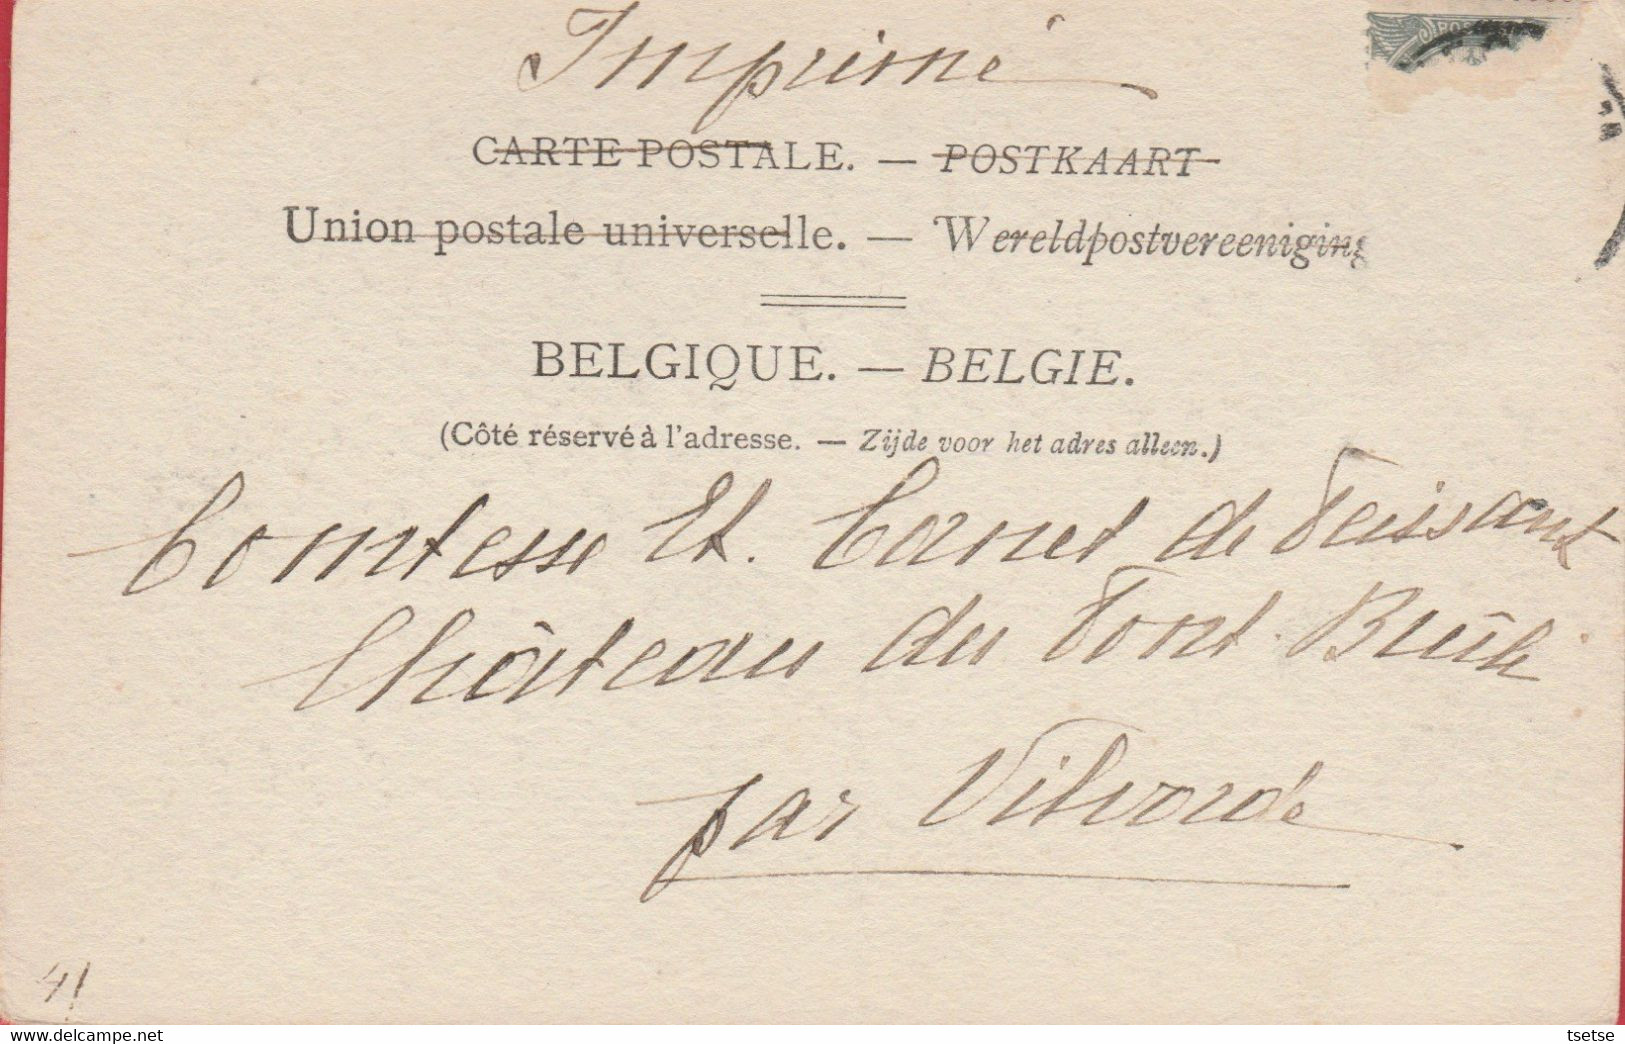 Imprimé
CARTE POSTALE. — POSTKAART
Union postale universelle. — Wereldpostvereeniging
BELGIQUE. — BELGIE.
(Côté réservé à l'adresse. — Zijde voor het adres alleen.)
Comtesse Et. Cornet de
Château du Pont Brûlé
par Vilvorde
41
www.delcampe.net
tsetse